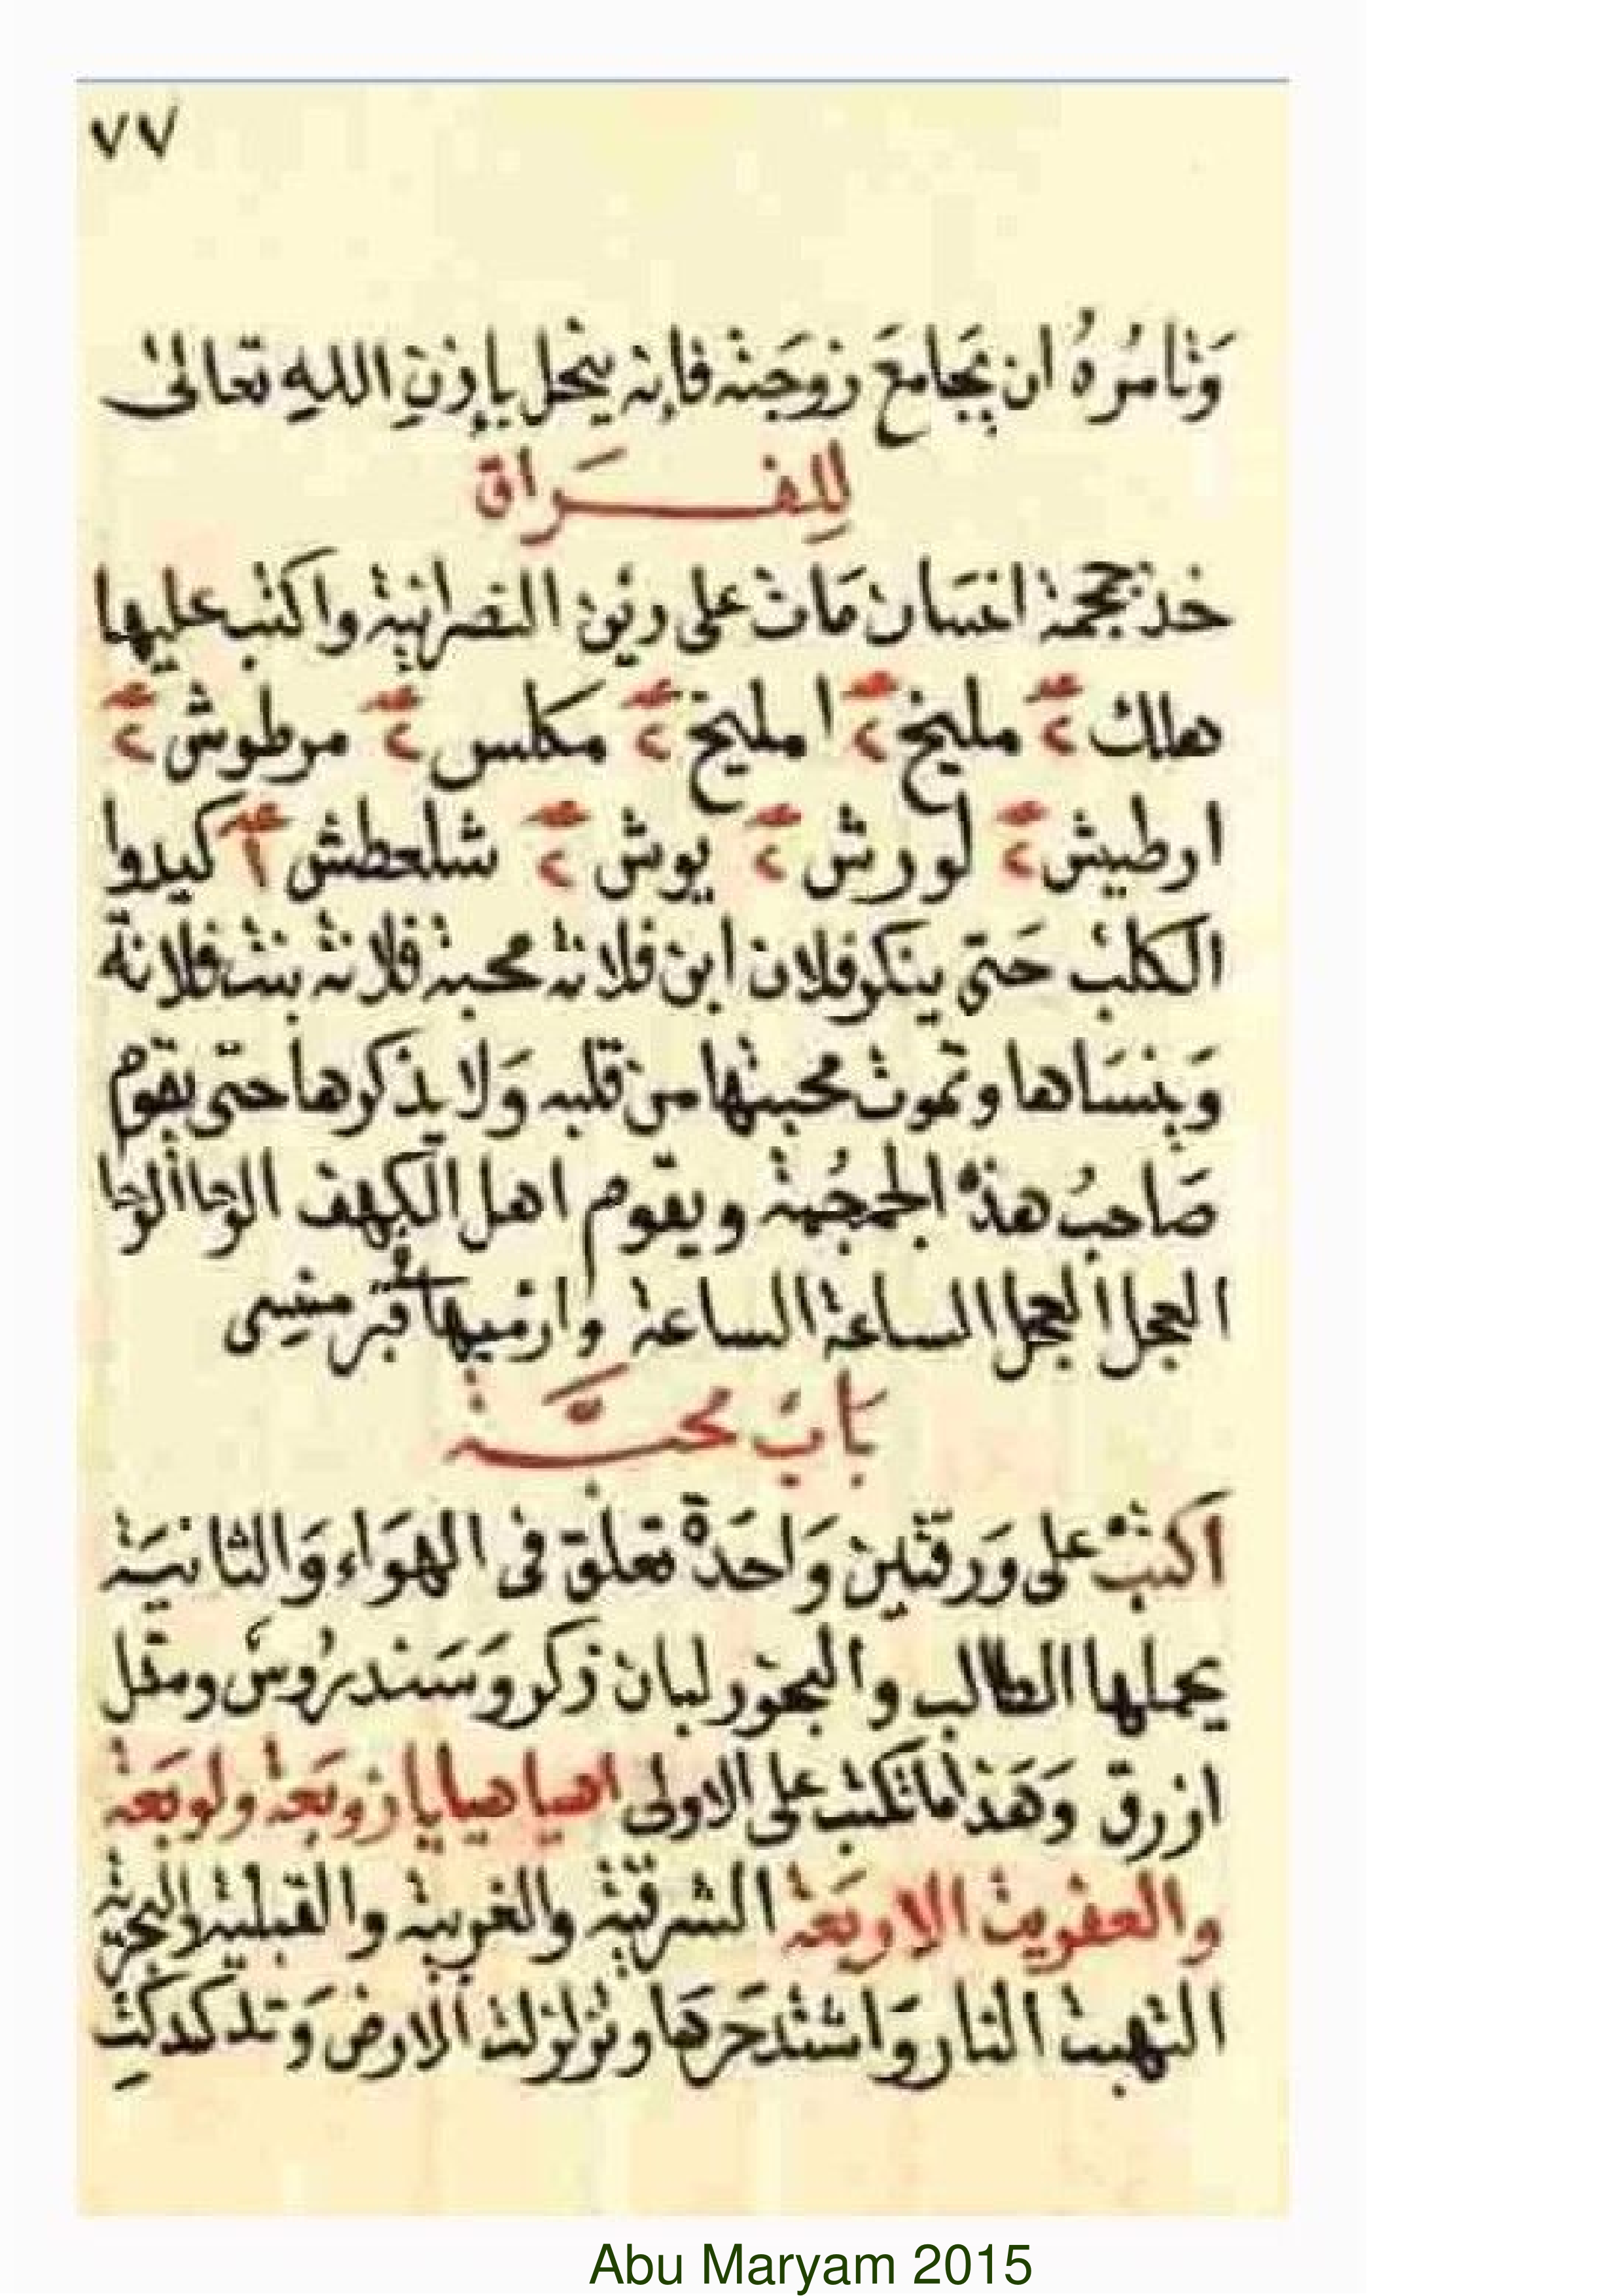 ٧٧
وَتامُرُهُ ان يجَامعَ زوجَته فانه ينحل بإذنِ اللهِ تعالىٰ
لِلفـــرَاق
خذ جمجمة انسَان مَات على دين النصرانية واكتب عليها
هلك ٢ مليخ ٢ امليخ ٢ مكلس ٢ مرطوش ٢
ارطيش ٢ لورش ٢ يوش ٢ شلعطش ٢ كيدوا
الكلب حَتى ينكر فلان ابن فلانة محبة فلانة بنت فلانة
وَينسَاها وتموت محبتها من قلبه وَلا يذكرها حتى يقوم
صَاحبُ هذه الجمجُمة ويقوم اهل الكهف الوحا الوحا
العجل العجل الساعة الساعة وارميها في قبر منسِى
بَابُ محبَّـــة
اكتب على وَرقتين وَاحدَة تعلق فى الهوَاء وَالثانيَة
يحملها الطالب والبخور لبان ذكر وَسَندرُوسْ ومقل
ازرق وَهَذا ما تكتب على الاولى اهيا هيا يا زوبَعة ولوبَعة
والعفريت الاربعَة الشرقيّة والغربية والقبلية والبحرية
التهبت النار وَاشتد حَرهَا وتزلزلت الارض وَتدكدكتِ
Abu Maryam 2015